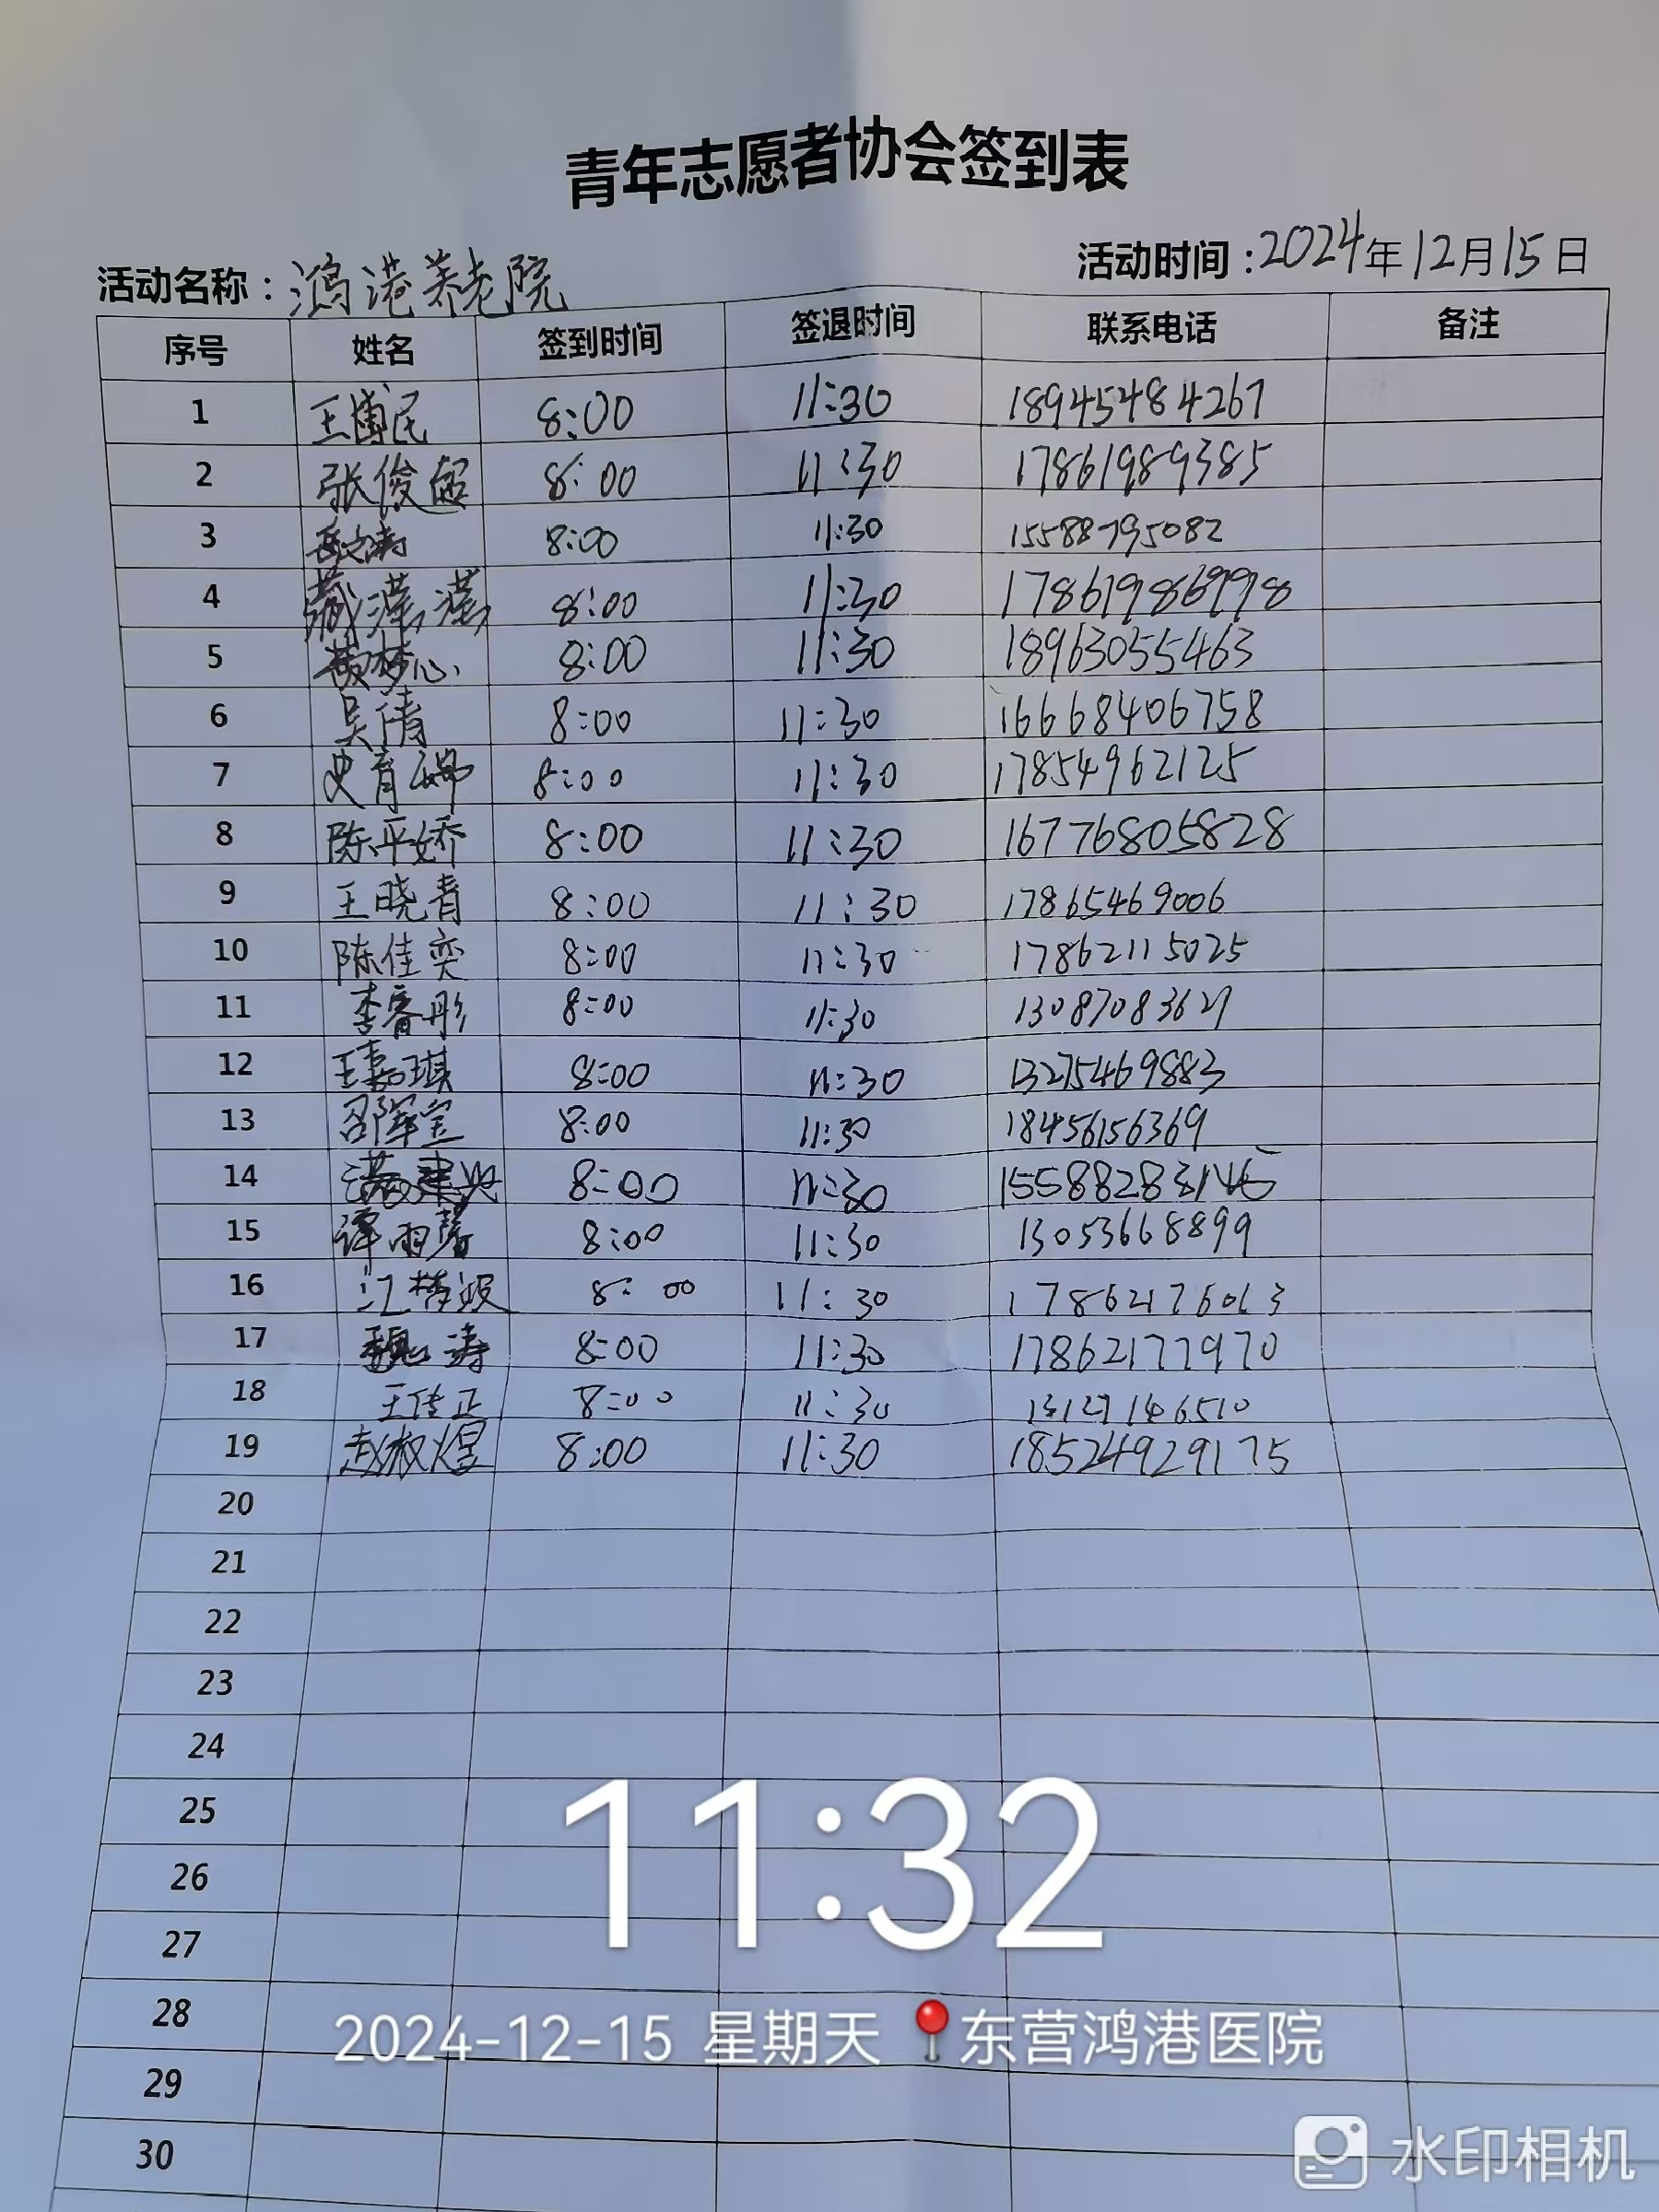 青年志愿者协会签到表
活动名称：鸿港养老院 活动时间：2024年12月15日
序号 姓名 签到时间 签退时间 联系电话 备注
1 王博民 8:00 11:30 18945484267
2 张俊超 8:00 11:30 17861989385
3 8:00 11:30 15588795082
4 臧潇潇 8:00 11:30
5 梦心 8:00 11:30 18963055463
6 吴倩 8:00 11:30 16668406758
7 史育娜 8:00 11:30 17854962125
8 陈平娇 8:00 11:30 16776805828
9 王晓青 8:00 11:30 17865469006
10 陈佳奕 8:00 11:30 17862115025
11 李睿彤 8:00 11:30 13087083627
12 王嘉琪 8:00 11:30 13275469883
13 8:00 11:30 18456156369
14 8:00 11:30
15 谭雨馨 8:00 11:30 13053668899
16 8:00 11:30 17862176013
17 魏涛 8:00 11:30 17862177970
18 王传正 8:00 11:30
19 8:00 11:30 18524929175
20
21
22
23
24
25
26
27
28
29
30
11:32
2024-12-15 星期天 东营鸿港医院
水印相机